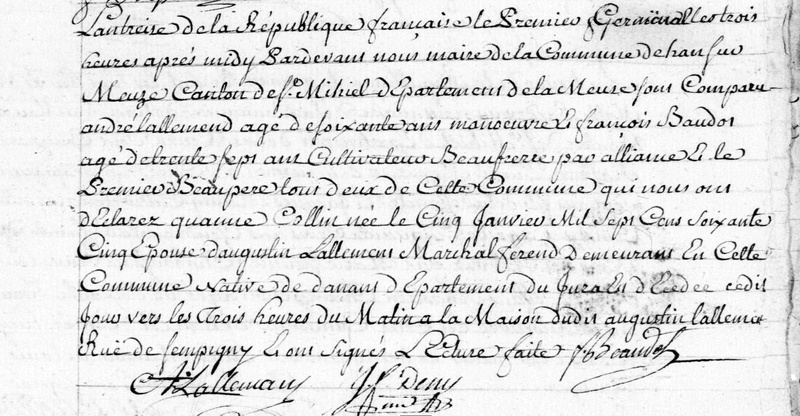 Lantreise de la République française le Premier Germinal les trois
heures aprés midy Pardevant nous maire de la Commune de han sur
Meuze Canton de St. Mihiel d'Epartement de la Meuse sont Comparu
andré lallemend agé de soixante ans manoeuvre Et françois Baudot
agé de trente sept ans Cultivateur Beaufrere par alliance Et le
Premier Beaupere tous deux de Cette Commune qui nous ont
d'Eclarez quanne Collin née le Cinq Janvier Mil Sept Cens soixante
Cinq Epouse d'augustin Lallement Marchal ferend Demeurans En Cette
Commune Native de danant d'Epartement du Jura En d'Ecedée cedit
Jour vers les Trois heures du Matin a la Maison dudit augustin lallement
Ruë de sempigny Et ont signés L'Ecture faite f Beaudot
A Lallemand Denis